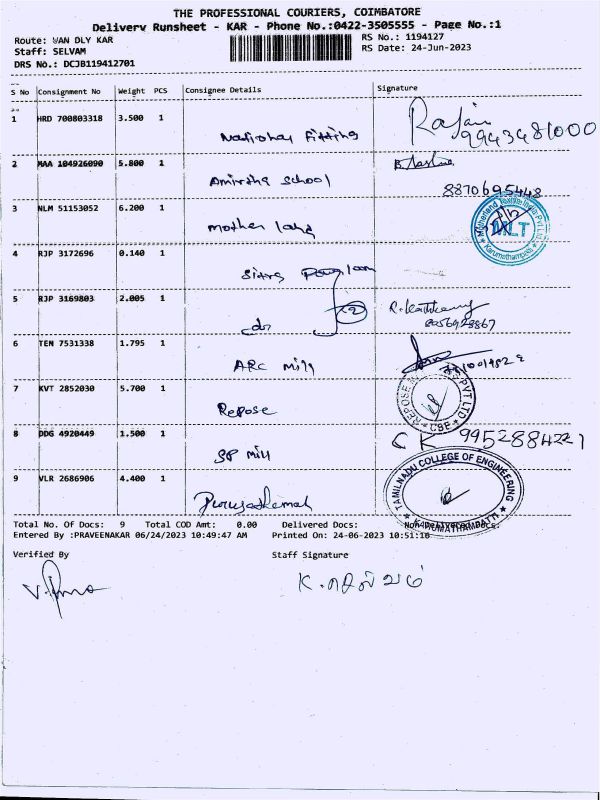 THE PROFESSIONAL COURIERS, COIMBATORE
Delivery Runsheet - KAR - Phone No.:0422-3505555 - Page No.:1
Route: VAN DLY KAR
RS No.: 1194127
Staff: SELVAM
RS Date: 24-Jun-2023
DRS No.: DCJB119412701
S No Consignment No Weight PCS Consignee Details Signature
1 HRD 700803318 3.500 1 National Fitting 9943481000
2 MAA 104926090 5.800 1 Amirtha school 8870695448
3 NLM 51153052 6.200 1 mother land MLT
4 RJP 3172696 0.140 1
5 RJP 3169803 2.005 1 do 2 8056928867
6 TEN 7531338 1.795 1 ARC mill
7 KVT 2852030 5.700 1 Repose CBE
8 DDG 4920449 1.500 1 SP mill CK 9952884221
9 VLR 2686906 4.400 1 TAMILNADU COLLEGE OF ENGINEERING KARUMATHAMPATTI
Total No. Of Docs: 9 Total COD Amt: 0.00 Delivered Docs:
Entered By :PRAVEENAKAR 06/24/2023 10:49:47 AM Printed On: 24-06-2023 10:51:16
Verified By Staff Signature
K. செல்வம்